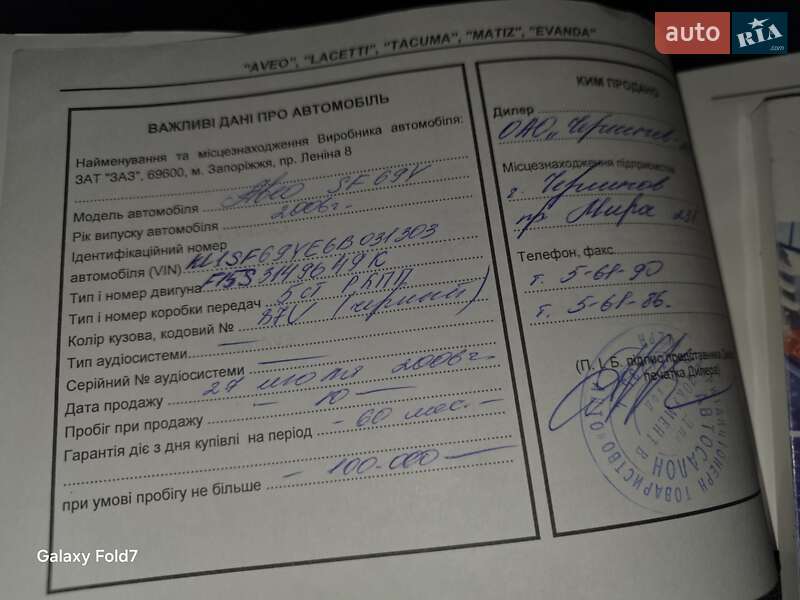 "AVEO", "LACETTI", "TACUMA", "MATIZ", "EVANDA"
auto RIA .com
ВАЖЛИВІ ДАНІ ПРО АВТОМОБІЛЬ
Найменування та місцезнаходження Виробника автомобіля:
ЗАТ "ЗАЗ", 69600, м. Запоріжжя, пр. Леніна 8
Модель автомобіля Aveo SF69Y
Рік випуску автомобіля 2006г.
Ідентифікаційний номер
автомобіля (VIN) KL1SF69YE6B031303
Тип і номер двигуна F15S3149649K
Тип і номер коробки передач 5ст РКПП
Колір кузова, кодовий № 87V (черный)
Тип аудіосистеми
Серійний № аудіосистеми
Дата продажу 27 июля 2006г.
Пробіг при продажу - 10 -
Гарантія діє з дня купівлі на період - 60 мес. -
при умові пробігу не більше - 100.000 -
КИМ ПРОДАНО
Дилер
ОАО "Чернигов-
Місцезнаходження підприємства
г. Чернигов
пр Мира
Телефон, факс
т. 5-68-90
т. 5-68-86.
(П. І. Б. підпис представника
печатка Дилера)
АВТОСАЛОН
ТОВАРИСТВО
Galaxy Fold7